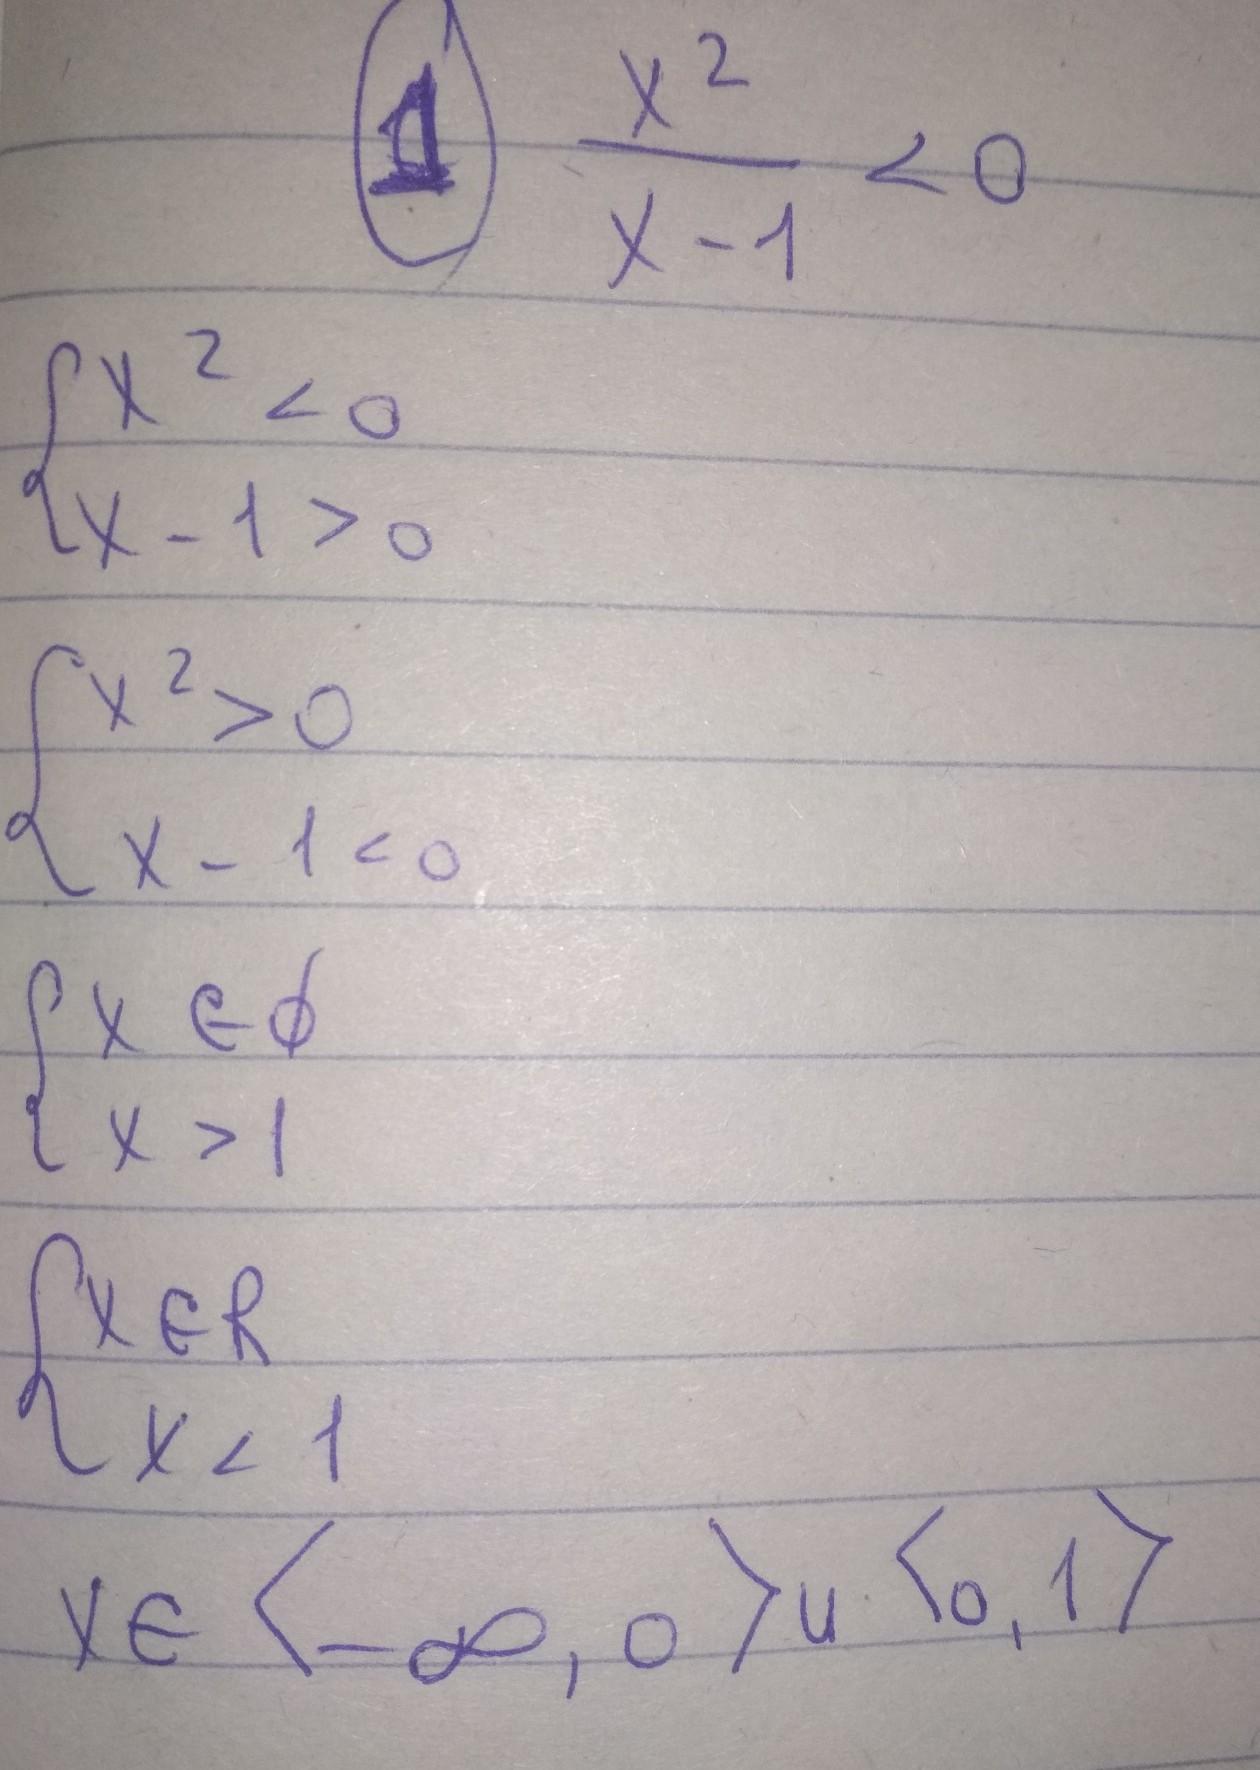 1 x²/(x-1) < 0
{x² < 0
x - 1 > 0
{x² > 0
x - 1 < 0
{x ∈ ∅
x > 1
{x ∈ R
x < 1
x ∈ ⟨-∞, 0⟩ ∪ ⟨0, 1⟩